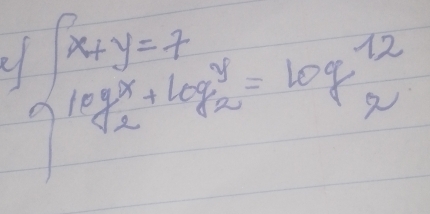 y) { x+y=7
log₂ˣ + log₂ʸ = log₂¹²